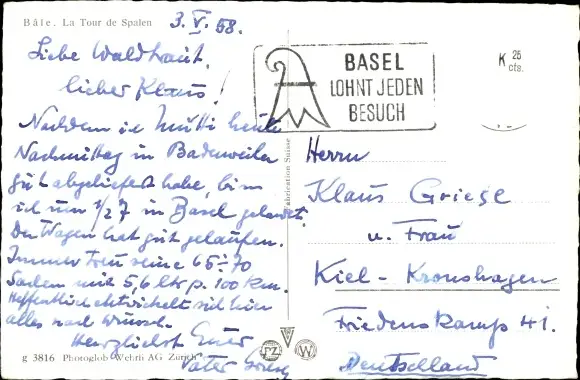 Bâle. La Tour de Spalen
3. V. 58.
Liebe Waldtraut,
lieber Klaus!
Nachdem ich Mutti heute
Nachmittag in Badenweiler
gut abgeliefert habe, bin
ich um 1/2 7 in Basel gelandet.
Der Wagen hat gut gelaufen.
Immer seine 65-70
Sachen mit 5,6 ltr p. 100 km.
Hoffentlich entwickelt sich hier
alles nach Wunsch.
Herzlichst Euer
Vater
g 3816 Photoglob-Wehrli AG Zürich
Fabrication Suisse
PZ
W
BASEL
LOHNT JEDEN
BESUCH
K 25
cts.
Herrn
Klaus Griese
u. Frau
Kiel - Kronshagen
Friedenskamp 41.
Deutschland